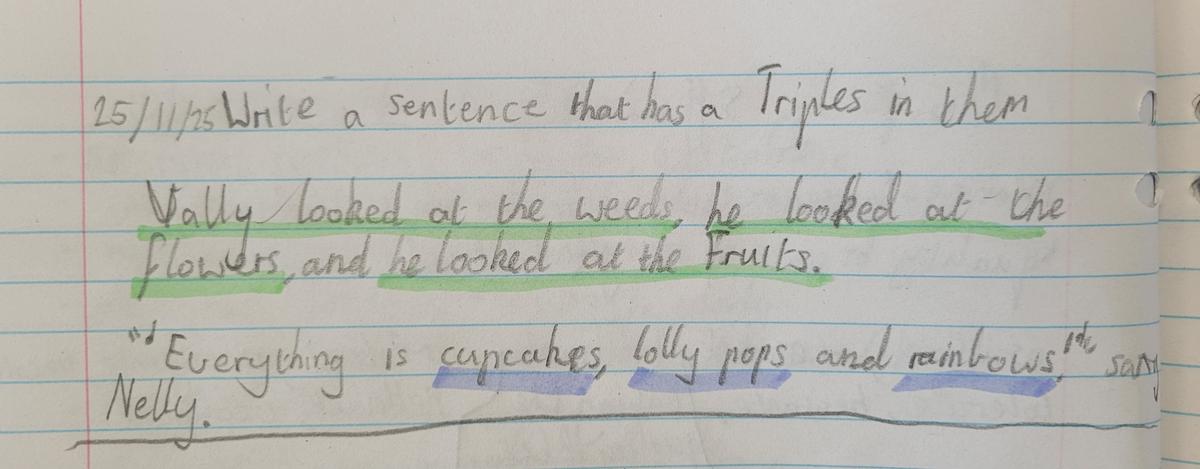 25/11/25 Write a sentence that has a Triples in them
Vally looked at the weeds, he looked at the
flowers, and he looked at the Fruits.
"Everything is cupcakes, lolly pops and rainbows,"
Nelly.